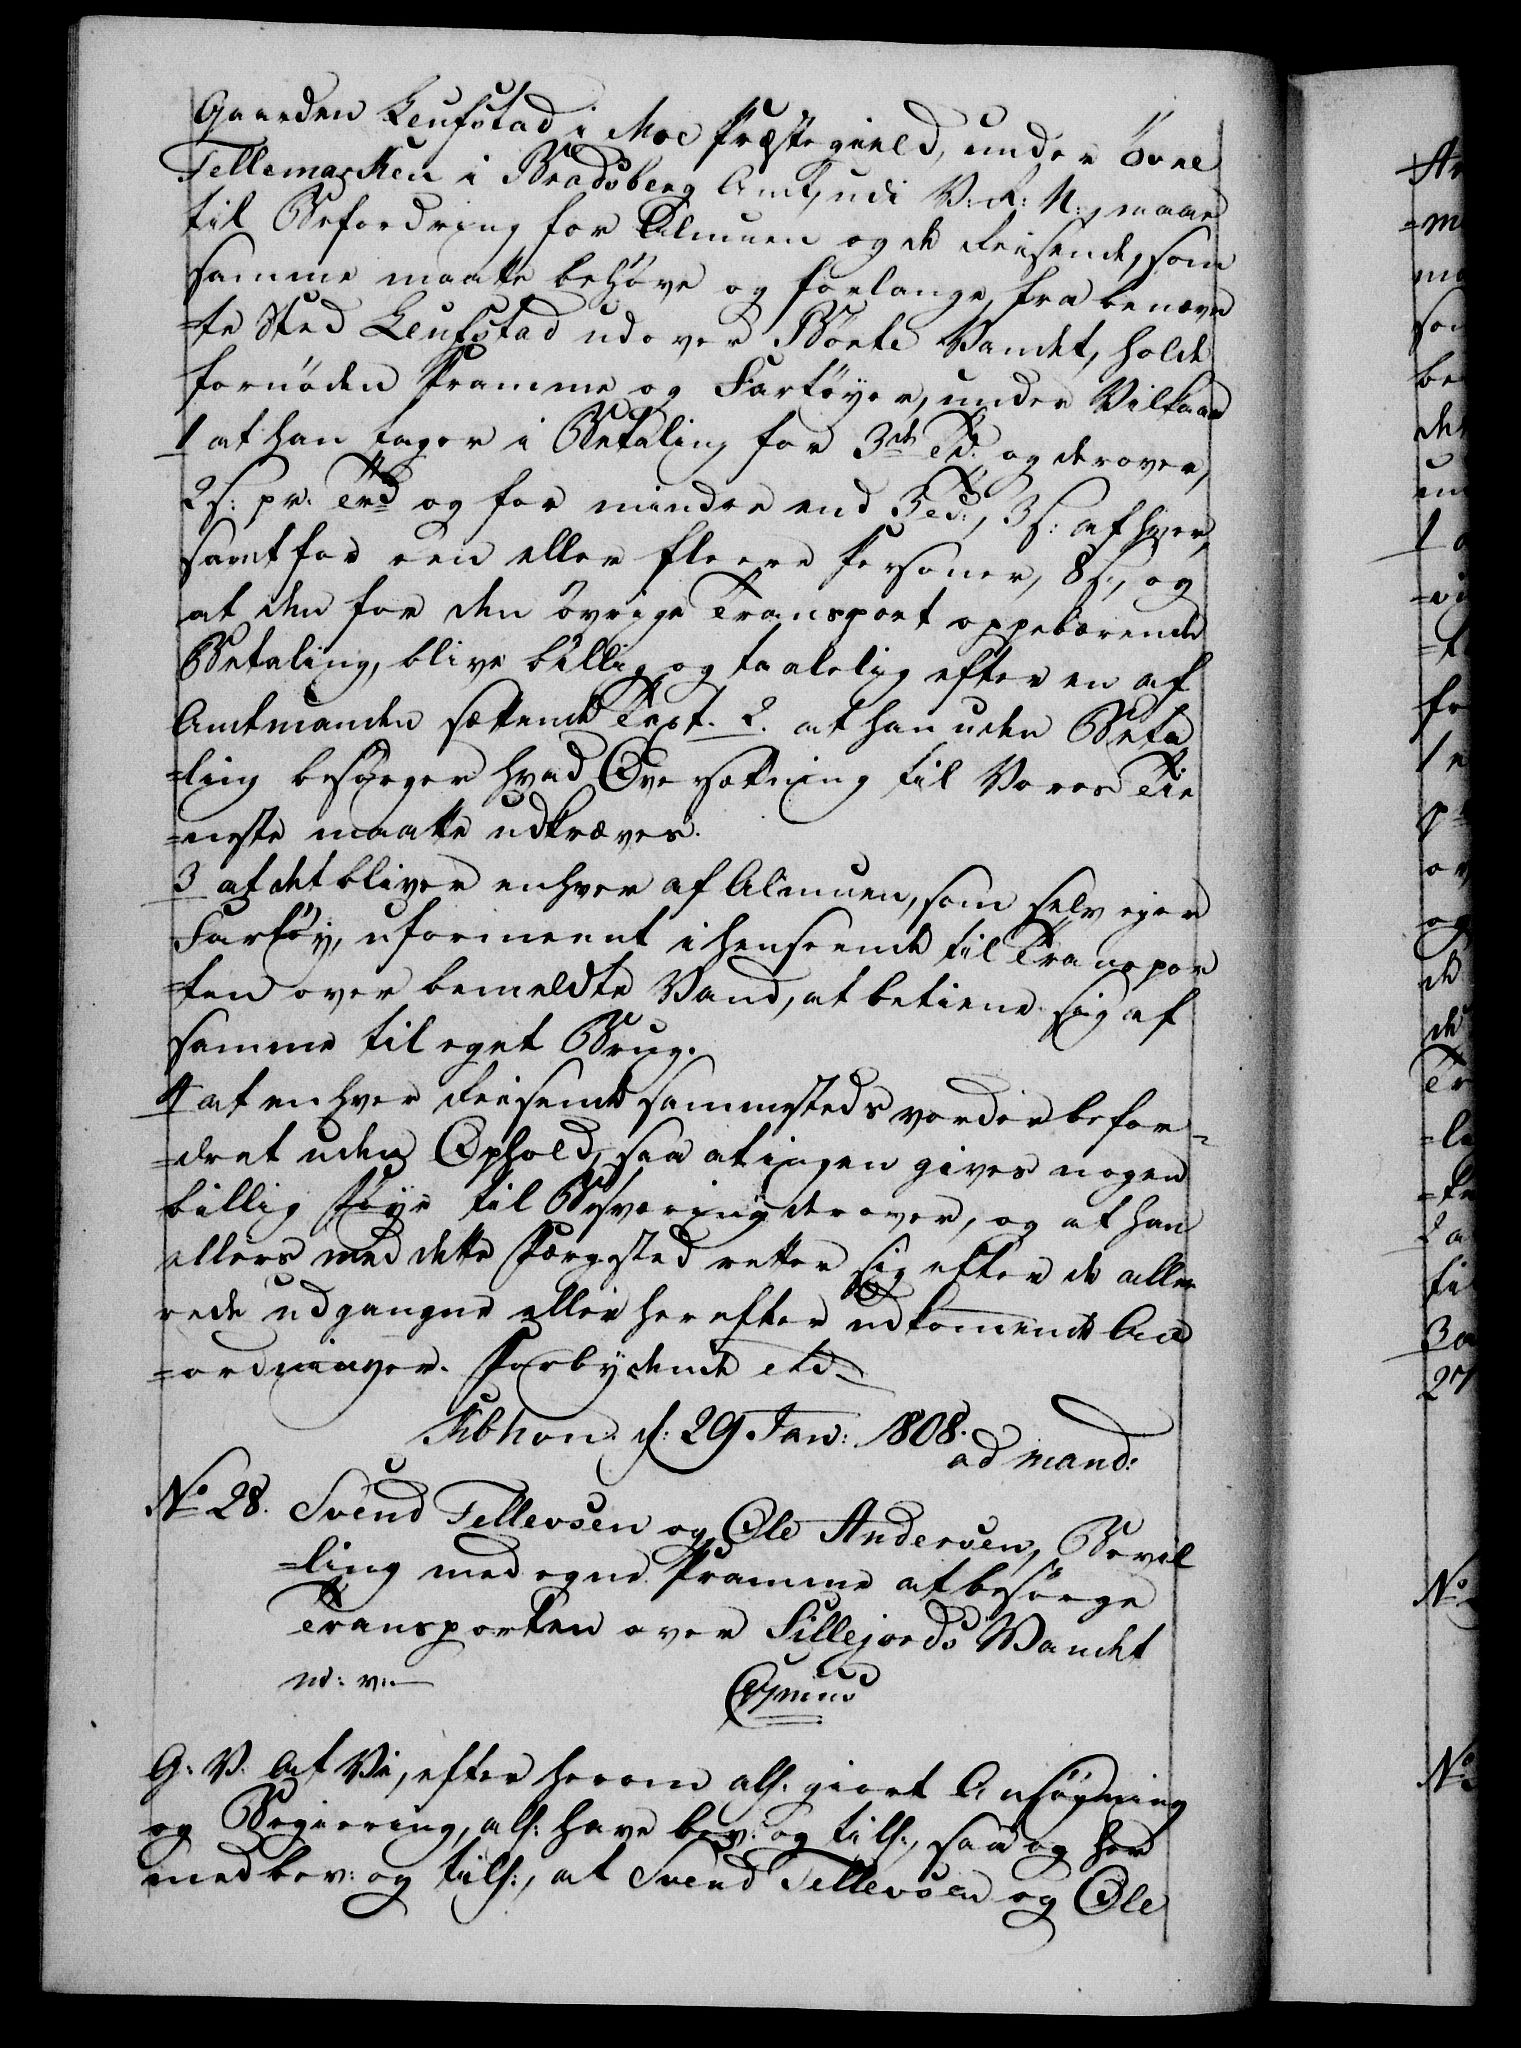 Gaarden Leufstad i Moe Præstegield, under Övre
Tellemarken i Bradsberg Amt, udi V: R: N:, maae
til Befordring for Almuen og de Reisende, som
samme maatte behöve og forlange, fra benævn
=te Sted Leufstad udover Börte Vandet, holde
fornöden Pramme og Fartöyer, under Vilkaar
1 at han tager i Betaling for 3de Td: og derover,
2 s: pr. Td og for mindre end 3 Td:, 3 s: af hver,
samt for een eller fleere Personer, 8 s:, og
at den for den övrige Transport oppebærende
Betaling, blive billig og taalelig efter en af
Amtmanden sættende Taxt. 2. at han uden Beta
=ling besörger hvad Oversætning til Vores Tie
=neste maatte udkræves.
3 at det bliver enhver af Almuen, som selv eger
Fartöy, uformeent i henseende til Transpor
=ten over bemeldte Vand, at betiene sig af
samme til eget Brug.
4 at enhver Reisende sammesteds vorder befor=
=dret uden Ophold, saa at ingen gives nogen
billig Föye til Besværing derover, og at han
ellers med dette Færgested retter sig efter de alle
rede udgangne eller herefter udkommende An
=ordninger. Forbydende etc
Kbhvn d: 29 Jan: 1808.
ad mand:
No 28. Svend Tellevsen og Ole Andersen, Bevil
=ling med egne Pramme at besörge
Transporten over Sillejords Vandet
m: v:
Gr: V. At Vi, efter herom all: giort Ansögning
og Begiering, all: have bev: og till:, saa og her
med bev: og till:, at Svend Tellevsen og Ole